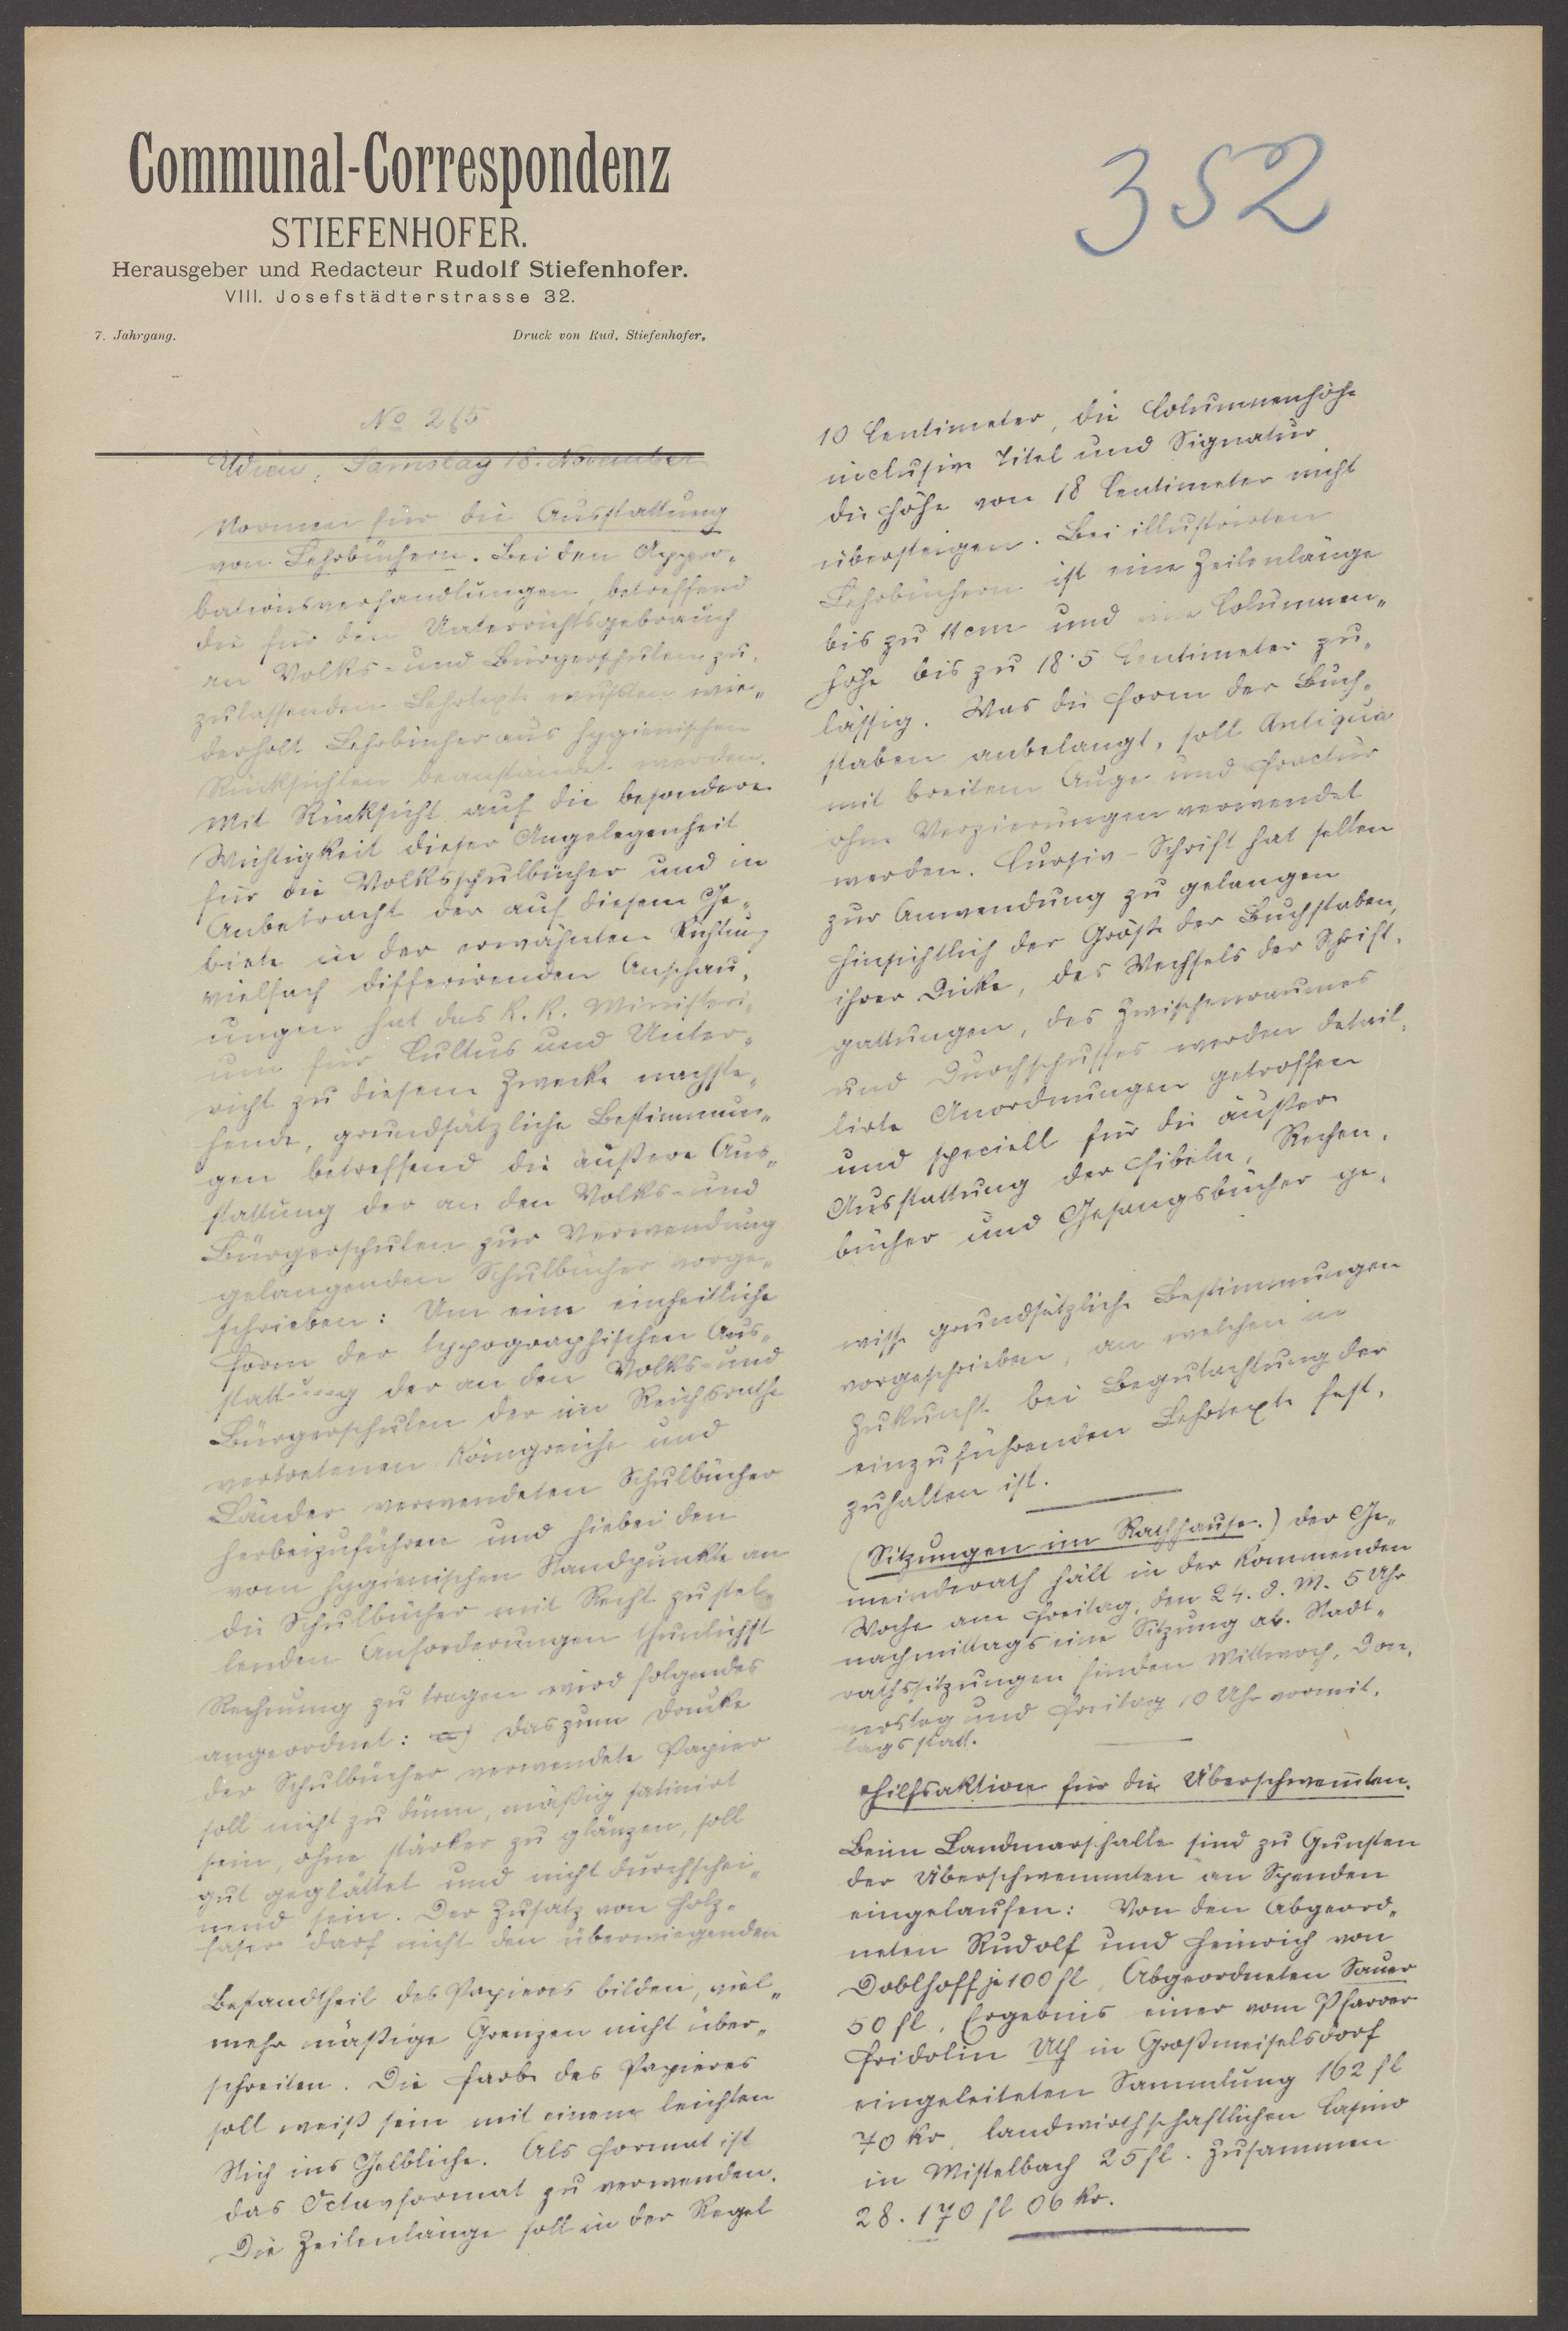 Communal-Correspondenz
STIEFENHOFER.
Herausgeber und Redacteur Rudolf Stiefenhofer.
VIII. Josefstädterstrasse 32.
7. Jahrgang. Druck von Rud. Stiefenhofer.
352
No 265
Wien, Samstag 18. November
Normen für die Ausstattung
von Lehrbüchern. Bei den Appro-
bationsverhandlungen, betreffend
die für den Unterrichtsgebrauch
an Volks- und Bürgerschulen zu-
zulassenden Lehrtexte mußten wie-
derholt Lehrbücher aus hygienischen
Rücksichten beanständet werden.
Mit Rücksicht auf die besondere
Wichtigkeit dieser Angelegenheit
für die Volksschulbücher und in
Anbetracht der auf diesem Ge-
biete in der erwähnten Richtung
vielfach differirenden Anschau-
ungen hat das k. k. Ministeri-
um für Cultus und Unter-
richt zu diesem Zwecke nachste-
hende, grundsätzliche Bestimmun-
gen betreffend die äußere Aus-
stattung der an den Volks- und
Bürgerschulen zur Verwendung
gelangenden Schulbücher vorge-
schrieben: Um eine einheitliche
Form der typographischen Aus-
stattung der an den Volks- und
Bürgerschulen der im Reichsrathe
vertretenen Königreiche und
Länder verwendeten Schulbücher
herbeizuführen und hiebei den
vom hygienischen Standpunkte an
die Schulbücher mit Recht zu stel-
lenden Anforderungen thunlichst
Rechnung zu tragen wird folgendes
angeordnet: a) das zum Drucke
der Schulbücher verwendete Papier
soll nicht zu dünn, mäßig satinirt
sein, ohne stärker zu glänzen, soll
gut geglättet und nicht durchschei-
nend sein. Der Zusatz von Holz-
faser darf nicht den überwiegenden
Bestandtheil des Papieres bilden, viel-
mehr mäßige Grenzen nicht über-
schreiten. Die Farbe des Papieres
soll weiß sein mit einem leichten
Stich ins Gelbliche. Als Format ist
das Octavformat zu verwenden.
Die Zeilenlänge soll in der Regel
10 Centimeter, die Columnenhöhe
inclusive Titel und Signatur
die Höhe von 18 Centimeter nicht
übersteigen. Bei illustrirten
Lehrbüchern ist eine Zeilenlänge
bis zu 11 cm und eine Columnen-
höhe bis zu 18·5 Centimeter zu-
lässig. Was die Form der Buch-
staben anbelangt, soll Antiqua
mit breitem Auge und Fractur
ohne Verzierungen verwendet
werden. Cursiv-Schrift hat selten
zur Anwendung zu gelangen
Hinsichtlich der Größe der Buchstaben,
ihrer Dicke, des Wechsels der Schrift-
gattungen, des Zwischenraumes
und Durchschusses werden detail-
lirte Anordnungen getroffen
und speciell für die äußere
Ausstattung der Fibeln, Rechen-
bücher und Gesangsbücher ge-
wisse grundsätzliche Bestimmungen
vorgeschrieben, an welchen in
Zukunft bei Begutachtung der
einzuführenden Lehrtexte fest-
zuhalten ist.
(Sitzungen im Rathhause.) Der Ge-
meinderath hält in der kommenden
Woche am Freitag, den 24. d. M. 5 Uhr
nachmittags eine Sitzung ab. Stadt-
rathssitzungen finden Mittwoch, Don-
nerstag und Freitag 10 Uhr vormit-
tags statt.
Hilfsaktion für die Überschwemmten.
Beim Landmarschalle sind zu Gunsten
der Überschwemmten an Spenden
eingelaufen: Von den Abgeord-
neten Rudolf und Heinrich von
Doblhoff je 100 fl, Abgeordneten Sauer
50 fl, Ergebnis einer vom Pfarrer
Fridolin Uth in Großmeiselsdorf
eingeleiteten Sammlung 162 fl
70 kr, landwirthschaftlichen Casino
in Mistelbach 25 fl. Zusammen
28.170 fl 06 kr.